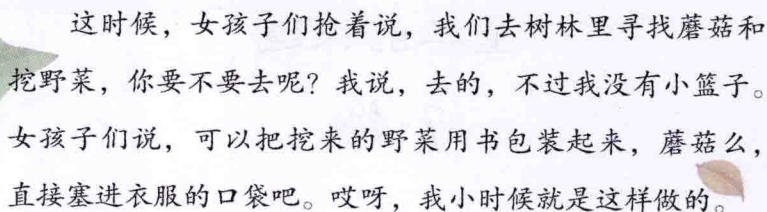 这时候，女孩子们抢着说，我们去树林里寻找蘑菇和
挖野菜，你要不要去呢？我说，去的，不过我没有小篮子。
女孩子们说，可以把挖来的野菜用书包装起来，蘑菇么，
直接塞进衣服的口袋吧。哎呀，我小时候就是这样做的。